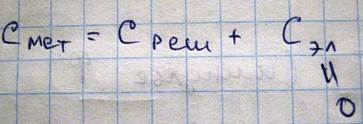 C мет = C реш + C эл
॥
0